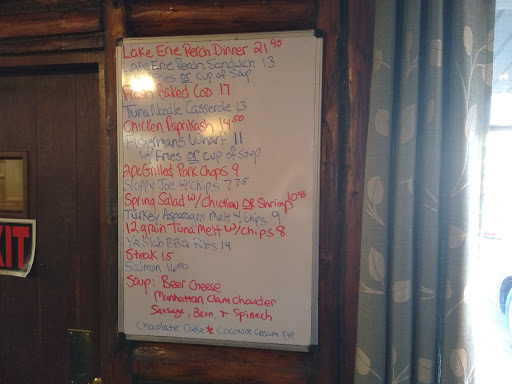 Lake Erie Perch Dinner 21 90
Lake Erie Perch Sandwich 13
w/ Fries or cup of soup
Fresh Baked Cod 17
Tuna Noodle Casserole 13
Chicken Paprikash 14 50
Fisherman's Wharf 11
w/ Fries or cup of soup
2pc Grilled Pork Chops 9
Sloppy Joe w/chips 7.75
Spring Salad w/Chicken OR Shrimp 10 95
Turkey Asparagus Melt w/ chips 9
12 grain Tuna Melt w/chips 8
1/2 Slab BBQ Ribs 14
Steak 15
Salmon 16 50
Soup: Beer Cheese
Manhattan Clam Chowder
Sausage, Bean, + Spinach
Chocolate Cake * Coconut Cream Pie
XIT